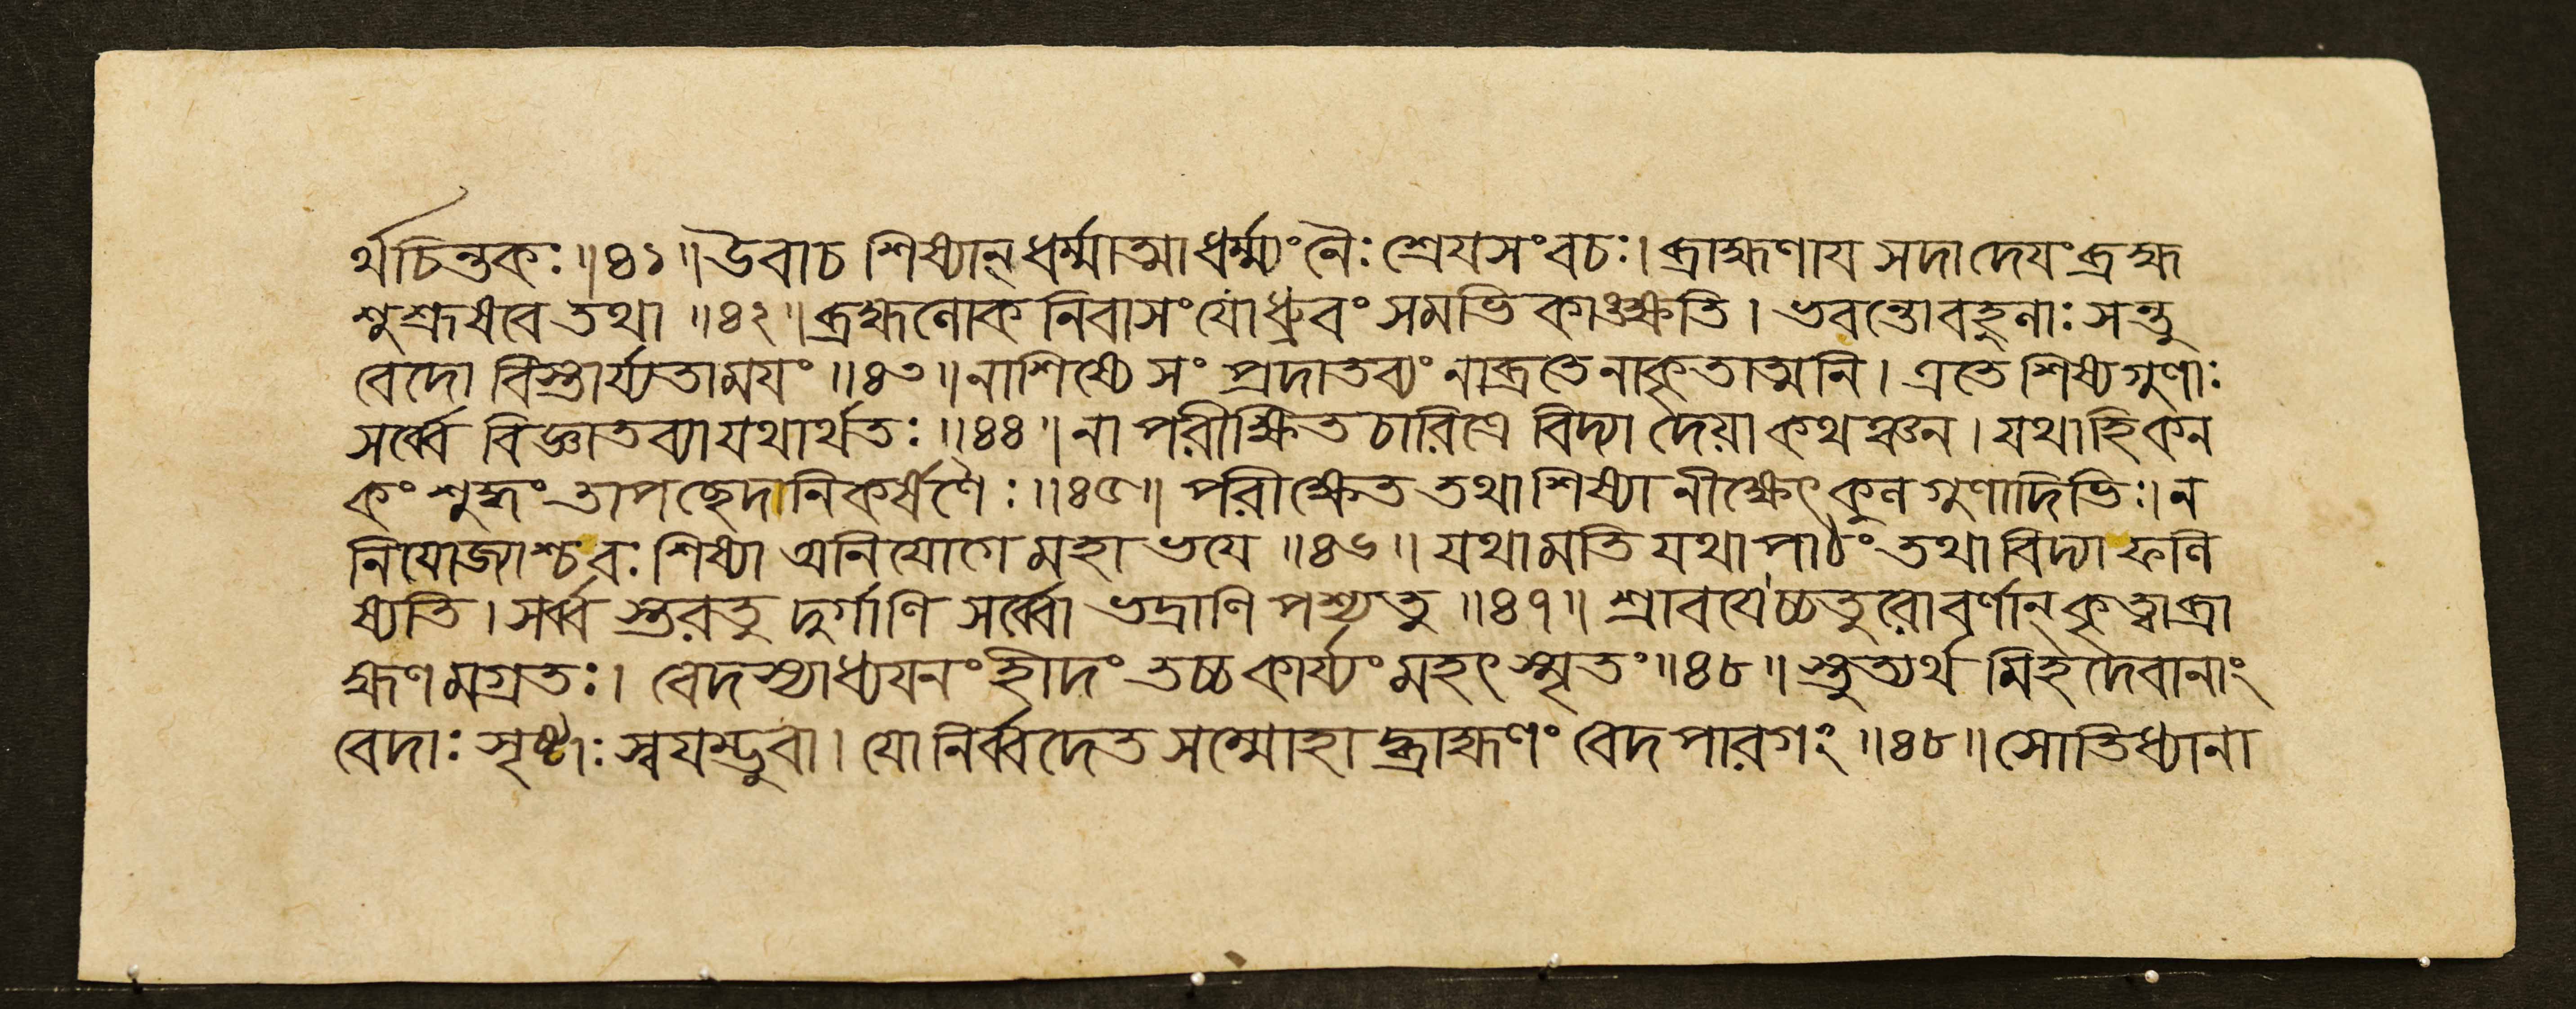 র্থচিন্তকঃ॥৪১॥উবাচ শিষ্যান্ ধর্ম্মাত্মা ধর্ম্ম্যং নৈঃশ্রেয়সং বচঃ। ব্রাহ্মণায সদা দেযং ব্রহ্ম
শুশ্রূষবে তথা ॥৪২॥ ব্রহ্মলোক নিবাসং যো ধ্রুবং সমভিকাঙ্ক্ষতি। ভবন্তো বহুলাঃ সন্তু
বেদো বিস্তার্য্যতাময়ং ॥৪৩॥ নাশিষ্যে সংপ্রদাতব্যং নাব্রতে নাকৃতাত্মনি। এতে শিষ্যগুণাঃ
সর্ব্বে বিজ্ঞাতব্যা যথার্থতঃ ॥৪৪॥ না পরীক্ষিত চারিত্রে বিদ্যা দেয়া কথঞ্চন। যথাহি কন
কং শুদ্ধং তাপচ্ছেদানিকর্ষণৈঃ॥৪৫॥ পরীক্ষেত তথা শিষ্যানীক্ষেৎ কুলগুণাদিভিঃ। ন
নিযোজ্যাশ্চ বঃ শিষ্যা অনিযোগে মহাভযে ॥৪৬॥ যথামতি যথাপাঠং তথা বিদ্যা ফলি
ষ্যতি। সর্ব্ব স্তরতু দুর্গাণি সর্ব্বো ভদ্রাণি পশ্যতু ॥৪৭॥ শ্রাবযেচ্চতুরো বর্ণান্ কৃত্বা ব্রা
হ্মণমগ্রতঃ। বেদস্যাধ্যযনং হীদং তচ্চ কার্য্যং মহৎ স্মৃতং॥৪৮॥ স্তুত্যর্থ মিহ দেবানাং
বেদাঃ সৃষ্টাঃ স্বযম্ভুবা। যো নির্ব্বদেত সম্মোহাদ্ব্রাহ্মণং বেদপারগং ॥৪৮॥ সোভিধ্যানা